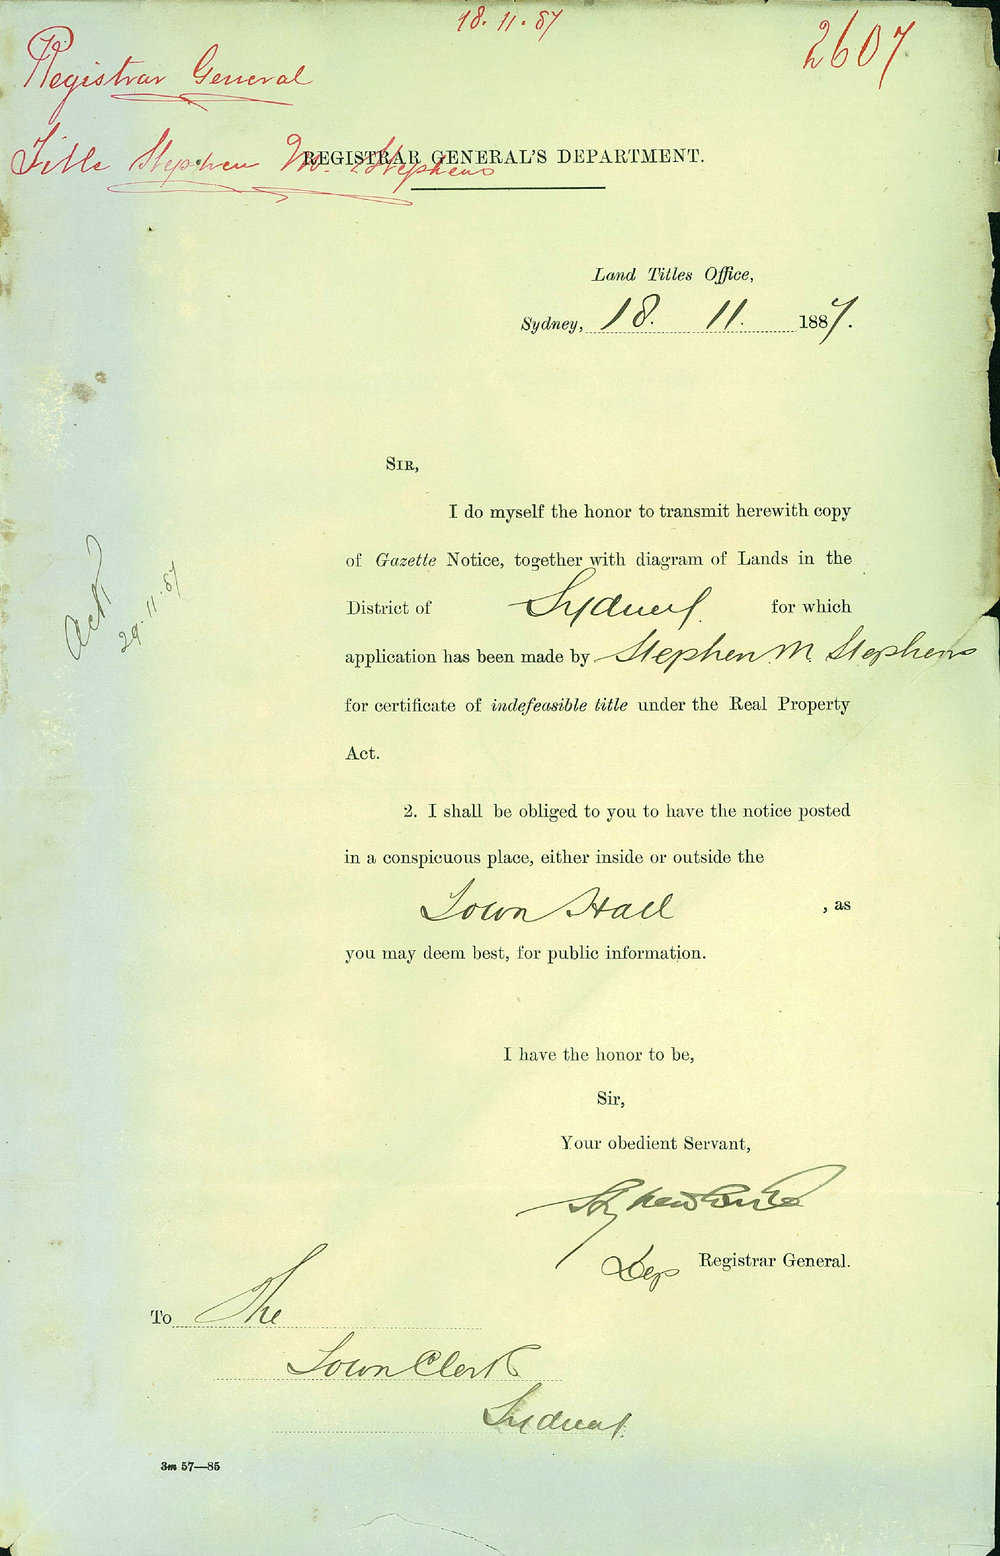 18.11.87
2607
Registrar General
Title Stephen M. Stephens
REGISTRAR GENERAL'S DEPARTMENT.
Land Titles Office,
Sydney, 18. 11. 1887.
SIR,
I do myself the honor to transmit herewith copy
of Gazette Notice, together with diagram of Lands in the
District of Sydney for which
application has been made by Stephen M. Stephens
for certificate of indefeasible title under the Real Property
Act.
Ack
29.11.87
2. I shall be obliged to you to have the notice posted
in a conspicuous place, either inside or outside the
Town Hall , as
you may deem best, for public information.
I have the honor to be,
Sir,
Your obedient Servant,
Dep Registrar General.
To The
Town Clerk
Sydney
3m 57—85